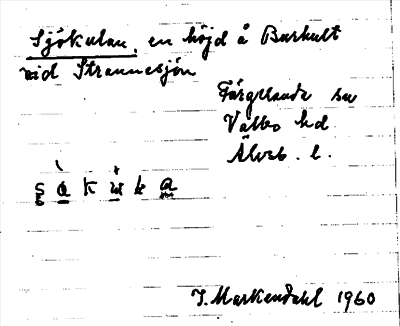 Sjökulan, en höjd å Barhult
vid Strannesjön
Färgelanda sn
Valbo hd.
Älvsb. l.
k k
I. Markendahl 1960